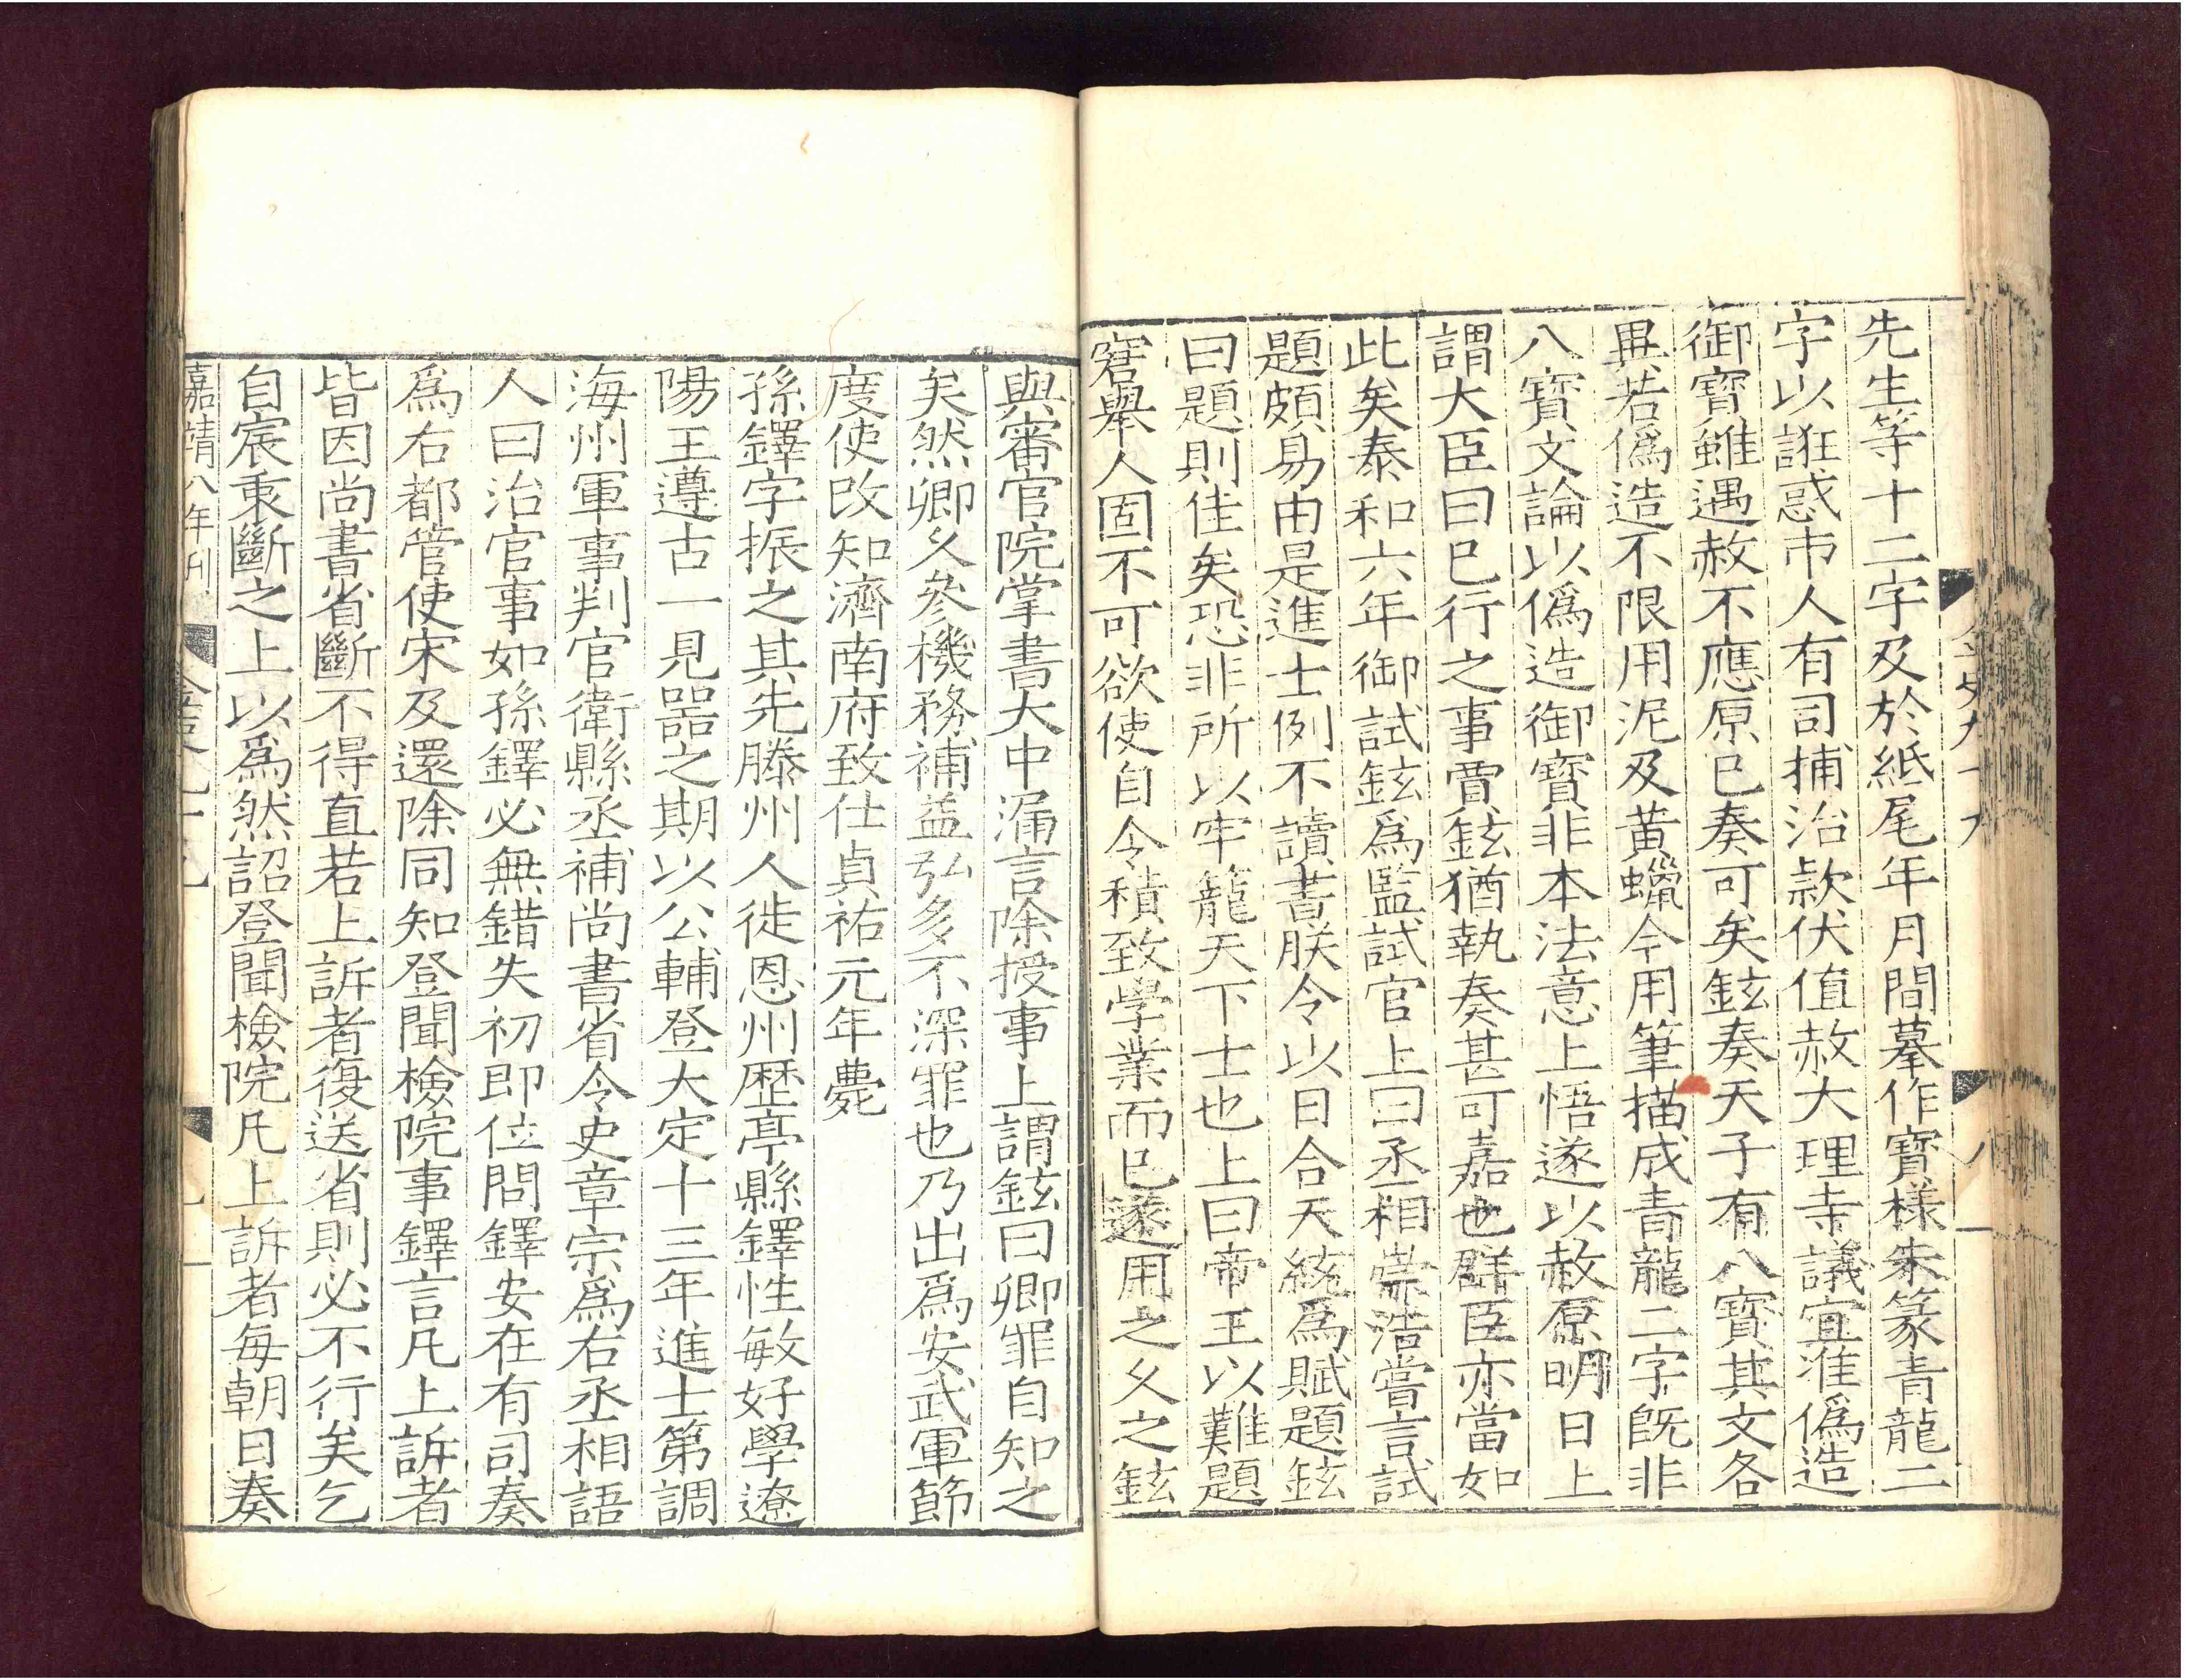 先生等十二字及於紙尾年月間摹作寶様朱篆青龍二
字以誑惑市人有司捕治款伏值赦大理寺議宜准僞造
御寶雖遇赦不應原已奏可矣鉉奏天子有八寶其文各
異若僞造不限用泥及黄蠟今用筆描成青龍二字旣非
八寶文論以僞造御寶非本法意上悟遂以赦原明日上
謂大臣曰已行之事賈鉉猶執奏甚可嘉也群臣亦當如
此矣泰和六年御試鉉爲監試官上曰丞相崇浩嘗言試
題頗易由是進士例不讀書朕今以日合天統爲賦題鉉
曰題則佳矣恐非所以牢籠天下士也上曰帝王以難題
窘舉人固不可欲使自今積致學業而已遂用之久之鉉
與審官院掌書大中漏言除授事上謂鉉曰卿罪自知之
矣然卿久參機務補益弘多不深罪也乃出爲安武軍節
度使改知濟南府致仕貞祐元年薨
孫鐸字振之其先滕州人徙恩州歷亭縣鐸性敏好學遼
陽王遵古一見器之期以公輔登大定十三年進士第調
海州軍事判官衛縣丞補尚書省令史章宗爲右丞相語
人曰治官事如孫鐸必無錯失初即位問鐸安在有司奏
爲右都管使宋及還除同知登聞檢院事鐸言凡上訴者
皆因尚書省斷不得直若上訴者復送省則必不行矣乞
自宸衷斷之上以爲然詔登聞檢院凡上訴者每朝日奏
嘉靖八年刊